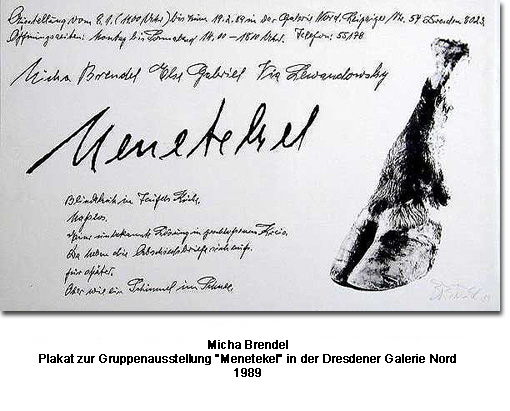 Ausstellung vom 8.1. (1600 Uhr) bis zum 19.2.89 in der Galerie Nord. Leipziger Str. 54 Dresden 8023
Öffnungszeiten: Montag bis Sonnabend 14.00 – 18.00 Uhr. Telefon: 55178
Micha Brendel Else Gabriel Via Lewandowsky
Menetekel
Blindekuh in Teufels Küche.
Maßlos.
unbekannte Lösung im geschlossenen Kreis.
Da heben die Abschiedsbriefe sich auf.
für später.
Aber wie ein Schimmel im Schnee.
Micha Brendel
Plakat zur Gruppenausstellung "Menetekel" in der Dresdener Galerie Nord
1989